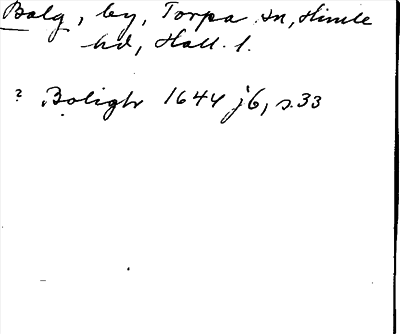 Balg, by, Torpa sn, Himle
hd, Hall. l.
? Boligh 1644 j6, s.33